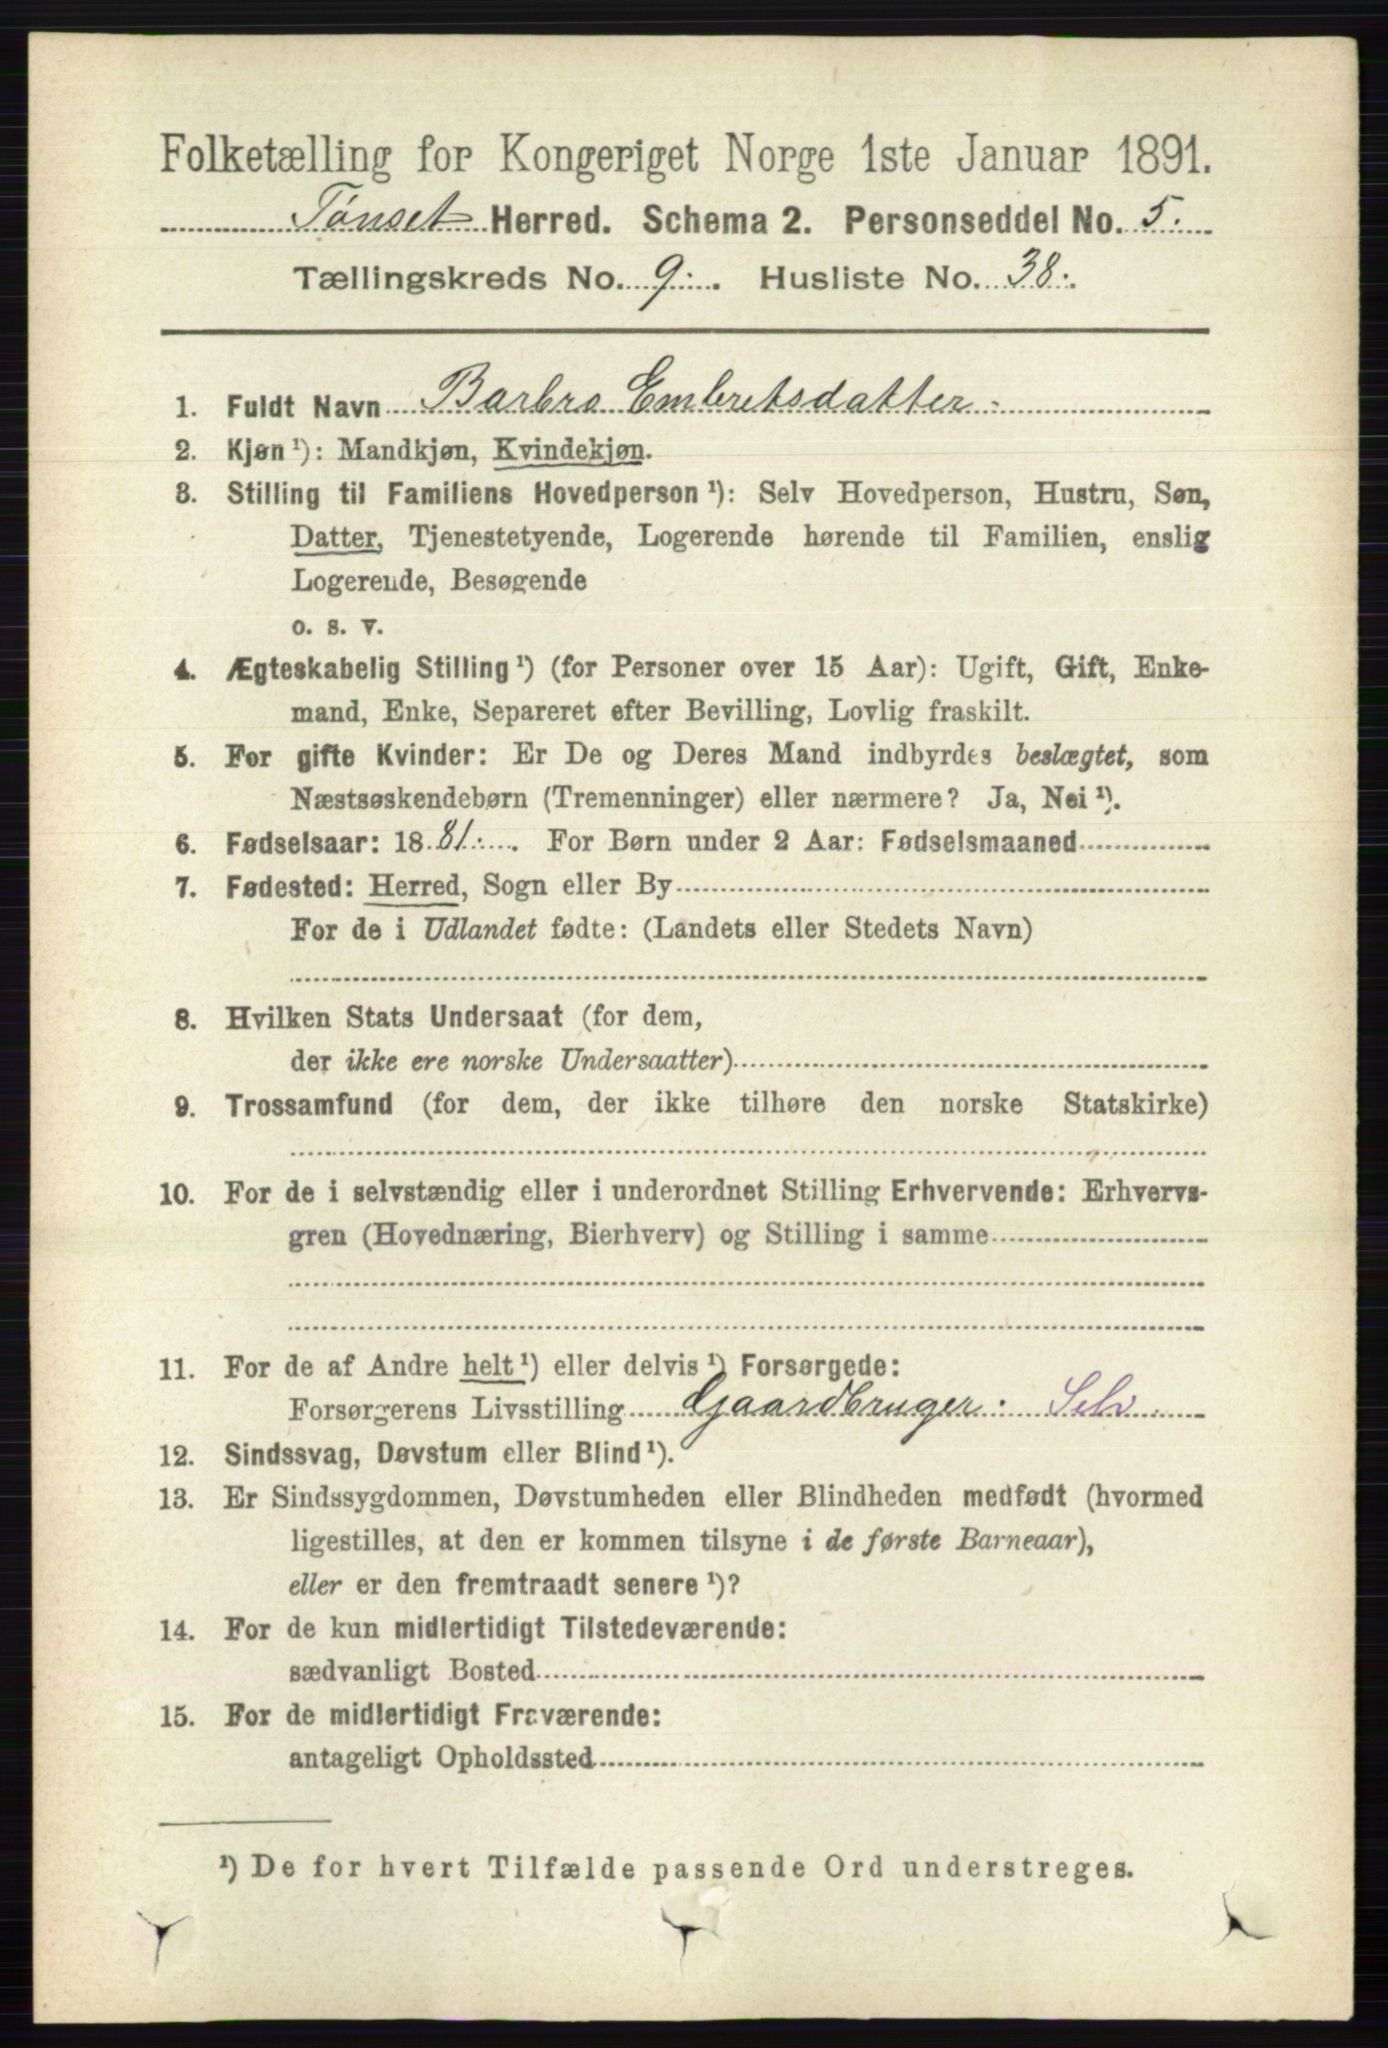 Folketælling for Kongeriget Norge 1ste Januar 1891.
Tønset Herred. Schema 2. Personseddel No. 5.
Tællingskreds No. 9. Husliste No. 38.
1. Fuldt Navn Barbro Embretsdatter
2. Kjøn ¹): Mandkjøn, Kvindekjøn.
3. Stilling til Familiens Hovedperson ¹): Selv Hovedperson, Hustru, Søn,
Datter, Tjenestetyende, Logerende hørende til Familien, enslig
Logerende, Besøgende
o. s. v.
4. Ægteskabelig Stilling ¹) (for Personer over 15 Aar): Ugift, Gift, Enke-
mand, Enke, Separeret efter Bevilling, Lovlig fraskilt.
5. For gifte Kvinder: Er De og Deres Mand indbyrdes beslægtet, som
Næstsøskendebørn (Tremenninger) eller nærmere? Ja, Nei ¹).
6. Fødselsaar: 1881. For Børn under 2 Aar: Fødselsmaaned
7. Fødested: Herred, Sogn eller By
For de i Udlandet fødte: (Landets eller Stedets Navn)
8. Hvilken Stats Undersaat (for dem,
der ikke ere norske Undersaatter)
9. Trossamfund (for dem, der ikke tilhøre den norske Statskirke)
10. For de i selvstændig eller i underordnet Stilling Erhvervende: Erhvervs-
gren (Hovednæring, Bierhverv) og Stilling i samme
11. For de af Andre helt ¹) eller delvis ¹) Forsørgede:
Forsørgerens Livsstilling Gaardbruger. Selv.
12. Sindssvag, Døvstum eller Blind ¹).
13. Er Sindssygdommen, Døvstumheden eller Blindheden medfødt (hvormed
ligestilles, at den er kommen tilsyne i de første Barneaar),
eller er den fremtraadt senere ¹)?
14. For de kun midlertidigt Tilstedeværende:
sædvanligt Bosted
15. For de midlertidigt Fraværende:
antageligt Opholdssted
¹) De for hvert Tilfælde passende Ord understreges.